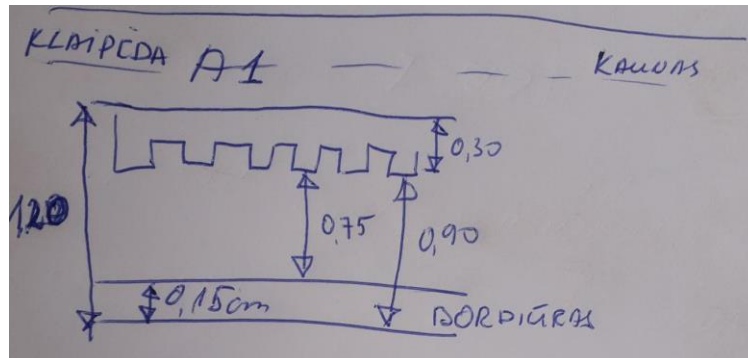 KLAIPĖDA A1 KAUNAS
0,30
1,20
0,75
0,90
0,15cm
BORDIŪRAS